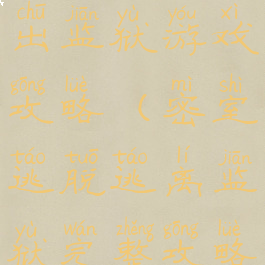 chū jiān yù yóu xì
出监狱游戏
gōng lüè mì shì
攻略(密室
táo tuō táo lí jiān
逃脱逃离监
yù wán zhěng gōng lüè
狱完整攻略